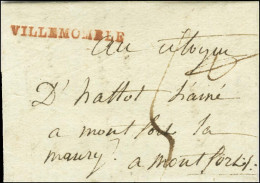 VILLEMOMBLE
au citoyen
D'hattot l'ainé
a montfort la
maury a montfort